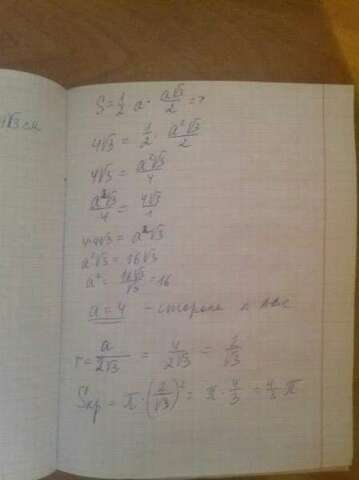 4√3 см
S = 1/2 a · a√3/2 =>
4√3 = 1/2 · a²√3/2
4√3 = a²√3/4
a²√3/4 = 4√3/1
4·4√3 = a²√3
a²√3 = 16√3
a² = 16√3/√3 = 16
a = 4 - сторона
r = a/2√3 = 4/2√3 = 2/√3
Sкр = π · (2/√3)² = π · 4/3 = 4/3 π